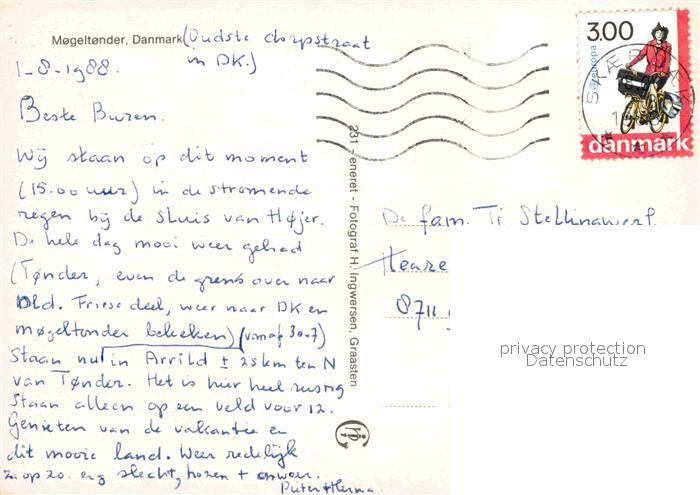 Møgeltønder, Danmark (Oudste dorpsstraat
in DK.)
1-8-1988.
Beste Buren.
Wij staan op dit moment
(15.00 uur) in de stromende
regen bij de sluis van Højer.
De hele dag mooi weer gehad
(Tønder, even de grens over naar
Dld. Friese deel, weer naar DK en
møgeltonder bekeken) (vanaf 30-7)
Staan nu in Arrild ± 25 km ten N
van Tønder. Het is hier heel rustig
Staan alleen op een veld voor 12.
Genieten van de vakantie en
dit mooie land. Weer redelijk
zo op zo. erg slecht, hozen + onweer.
Pieter + Herma.
231 - eneret - Fotograf H. Ingwersen, Graasten
3.00
europa
danmark
De fam. Ti Stellingwerf
8711
privacy protection
Datenschutz